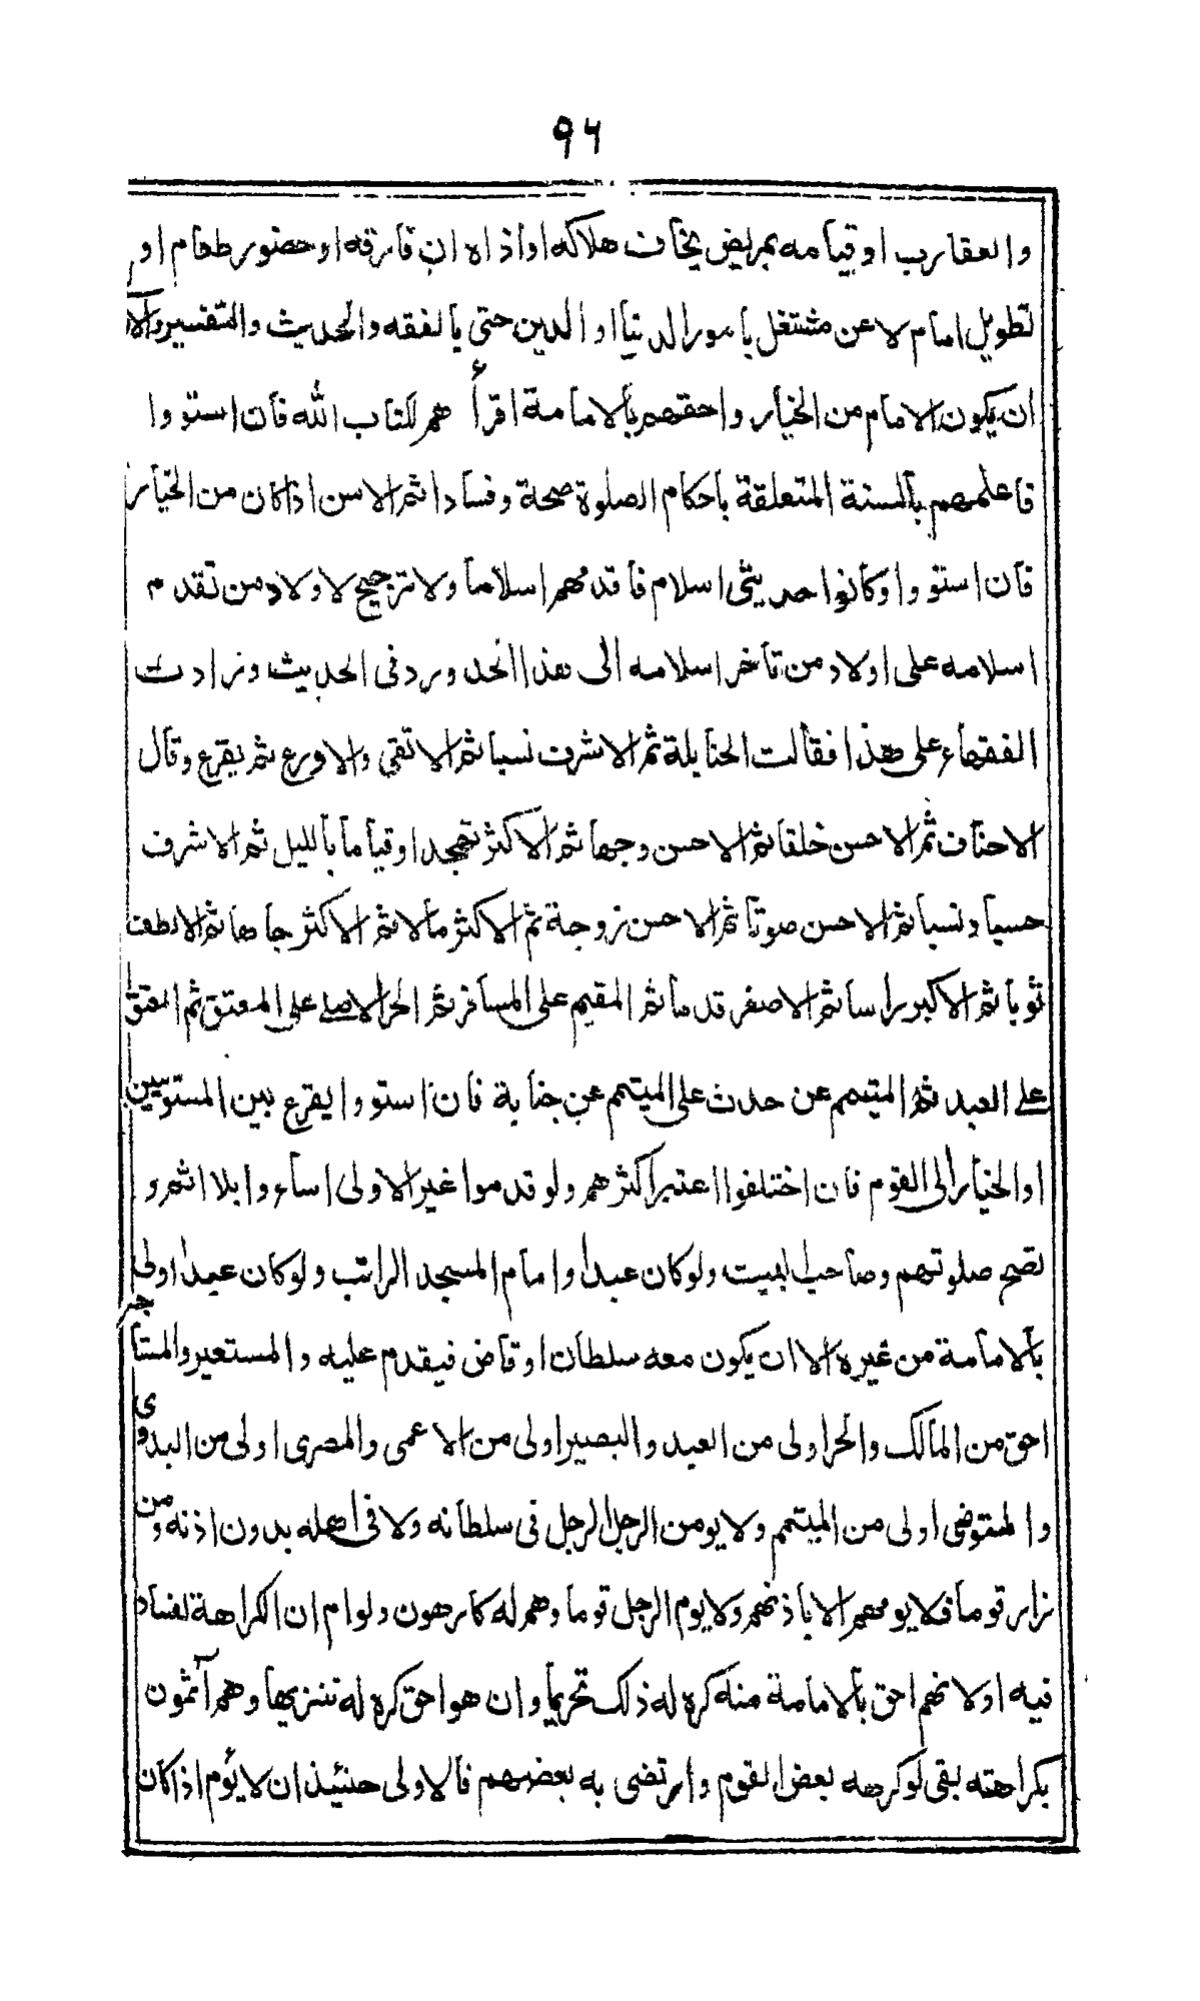 ۹۶
والعقارب او قيامه بمريض يخاف هلاكه او اذاه ان فارقه او حضور طعام او
تطويل امام لا عن مشتغل بامور الدنيا او الدين حتى بالفقه والحديث والتفسير
ان يكون الامام من الخيار واحقهم بالامامة اقرأ هم لكتاب الله فان استووا
فاعلمهم بالسنة المتعلقة باحكام الصلوة صحة وفسادا ثم الاسن اذا كان من الخيار
فان استووا وكانوا حديثى اسلام فاقدمهم اسلاما ولا ترجيح لاولاد من تقدم
اسلامه على اولاد من تأخر اسلامه الى هذا الحد ورد فى الحديث وزادت
الفقهاء على هذا فقالت الحنابلة ثم الاشرف نسبا ثم الاتقى والاورع ثم يقرع وقال
الاحناف ثم الاحسن خلقا ثم الاحسن وجها ثم الاكثر تهجدا وقياما بالليل ثم الاشرف
حسبا ونسبا ثم الاحسن صوتا ثم الاحسن زوجة ثم الاكثر مالا ثم الاكثر جاها ثم الانظف
ثوبا ثم الاكبر راسا ثم الاصغر قدما ثم المقيم على المسافر ثم الحر الاصلے على المعتق ثم المعتق
علے العبد ثم المتيمم عن حدث على الميتمم عن جنابة فان استووا يقرع بين المستويين
او الخيار الى القوم فان اختلفوا اعتبر اكثرهم ولو قدموا غير الاولى اساءوا بلا اثم و
تصح صلوتهم وصاحب البيت ولو كان عبدا وامام المسجد الراتب ولو كان عبدا اولى
بالامامة من غيره الا ان يكون معه سلطان او قاض فيقدم عليه والمستعير والمستاجر
احق من المالك والحر اولى من العبد والبصير اولى من الاعمى والمصرى اولى من البدوى
والمتوضى اولى من الميتمم ولا يومن الرجل الرجل فى سلطانه ولا فى اهله بدون اذنه ومن
زار قوما فلا يومهم الا باذنهم ولا يوم الرجل قوما وهم له كارهون ولو ام ان الكراهة لفساد
فيه او لانهم احق بالامامة منه كره له ذلك تحريما وان هو احق كره له تنزيها وهم آثمون
بكراهته بقى لو كرهه بعض القوم وارتضى به بعضهم فالاولى حنيئذ ان لا يؤم اذا كان